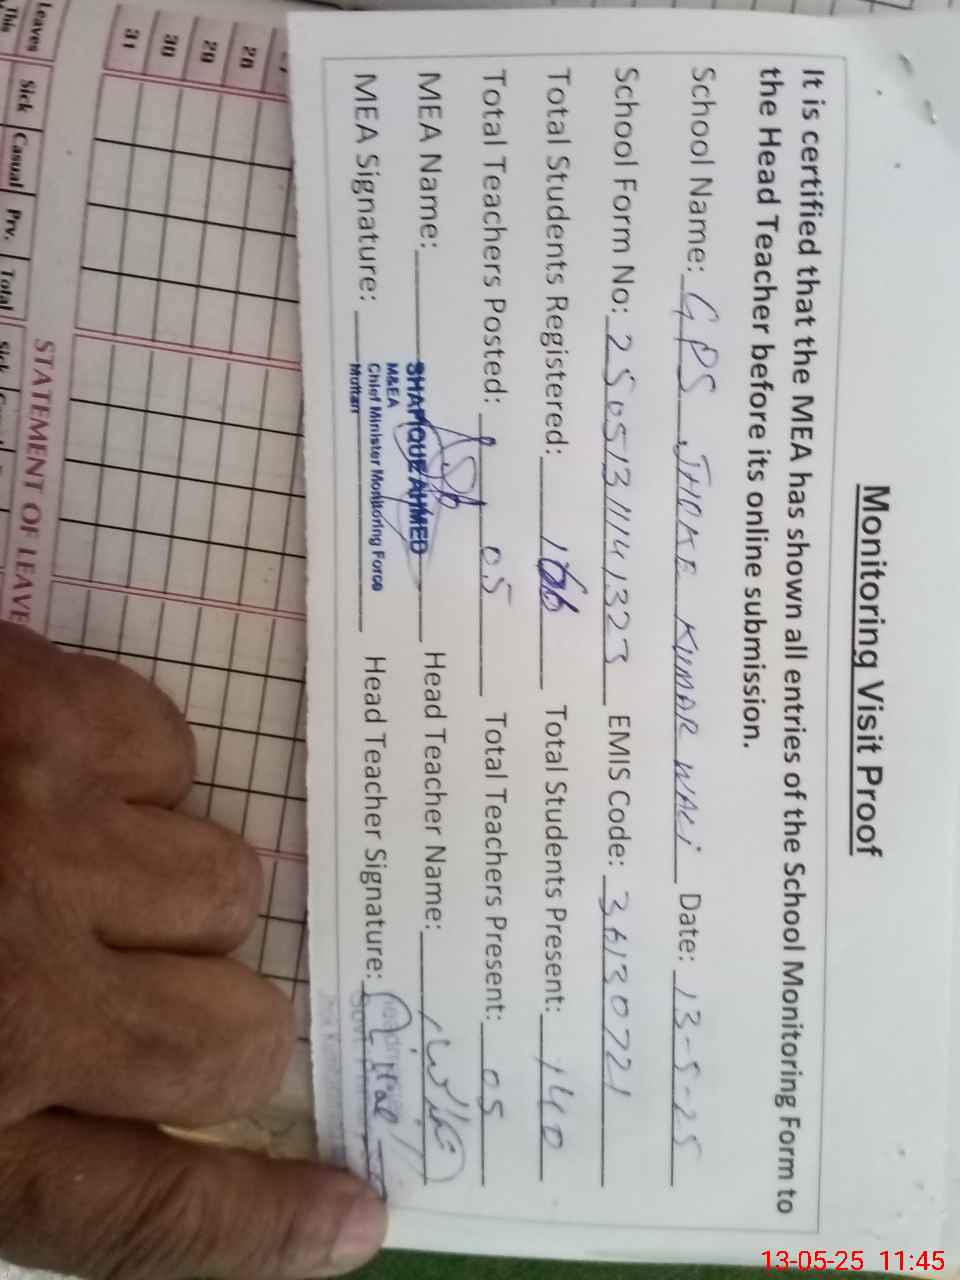 Monitoring Visit Proof
It is certified that the MEA has shown all entries of the School Monitoring Form to
the Head Teacher before its online submission.
School Name: GPS JHOKE KUMAR WALI Date: 13-5-25
School Form No: 25051311141323 EMIS Code: 36130721
Total Students Registered: 166 Total Students Present: 140
Total Teachers Posted: 05 Total Teachers Present: 05
MEA Name: SHAFIQUE AHMED Head Teacher Name:
M&EA
Chief Minister Monitoring Force
Multan
MEA Signature: Head Teacher Signature:
28
29
30
31
STATEMENT OF LEAVE
Leaves Sick Casual Prv. Total Sick
This
13-05-25 11:45